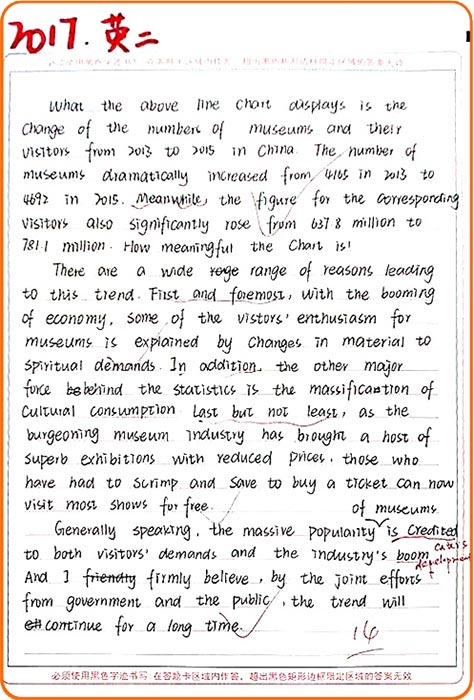 2017. 英二
What the above line chart displays is the
change of the numbers of museums and their
visitors from 2013 to 2015 in China. The number of
museums dramatically increased from 4165 in 2013 to
4692 in 2015. Meanwhile, the figure for the corresponding
visitors also significantly rose from 637.8 million to
781.1 million. How meaningful the chart is!
There are a wide range of reasons leading
to this trend. First and foremost, with the booming
of economy, some of the vistors' enthusiasm for
museums is explained by changes in material to
spiritual demands. In addition, the other major
force behind the statistics is the massification of
cultural consumption. Last but not least, as the
burgeoning museum industry has brought a host of
superb exhibitions with reduced prices, those who
have had to scrimp and save to buy a ticket can now
visit most shows for free.
of museums
Generally speaking, the massive popularity is credited
to both visitors' demands and the industry's boom.
development
And I friendly firmly believe, by the joint efforts
from government and the public, the trend will
continue for a long time.
14
必须使用黑色字迹书写:在答题卡区域内作答,超出黑色矩形边框限定区域的答案无效